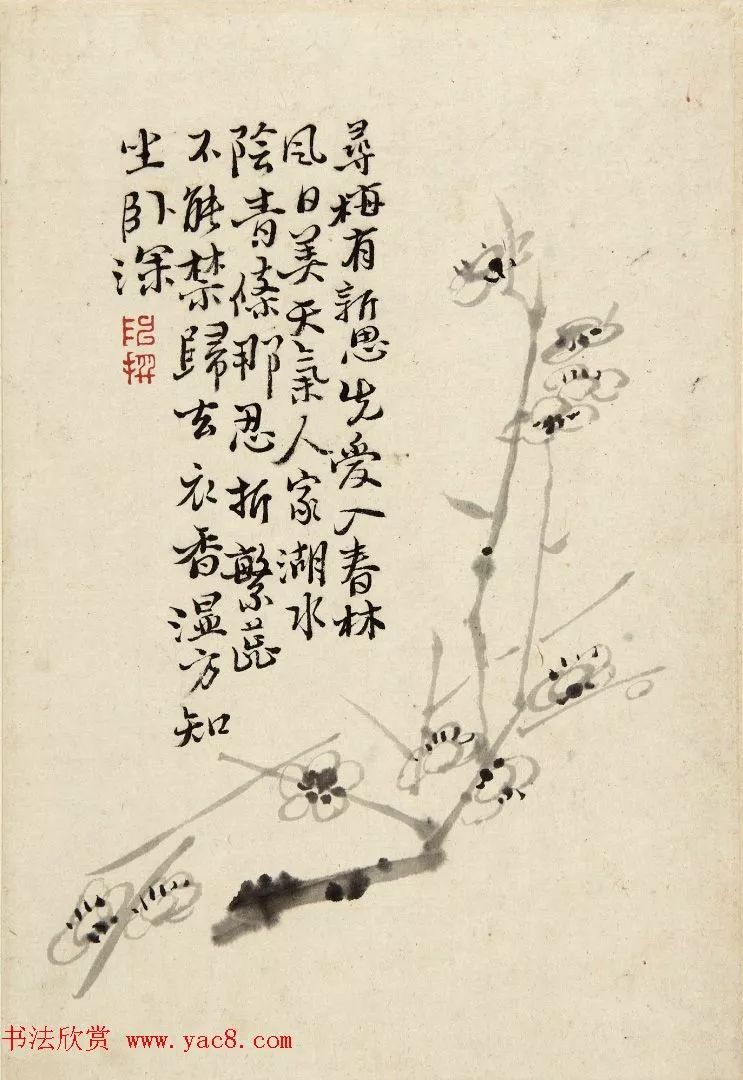 尋梅有新思先愛入春林
風日美天氣人家湖水
陰青條那忍折繁蕊
不能禁歸去衣香湿方知
坐卧深
书法欣赏 www.yac8.com